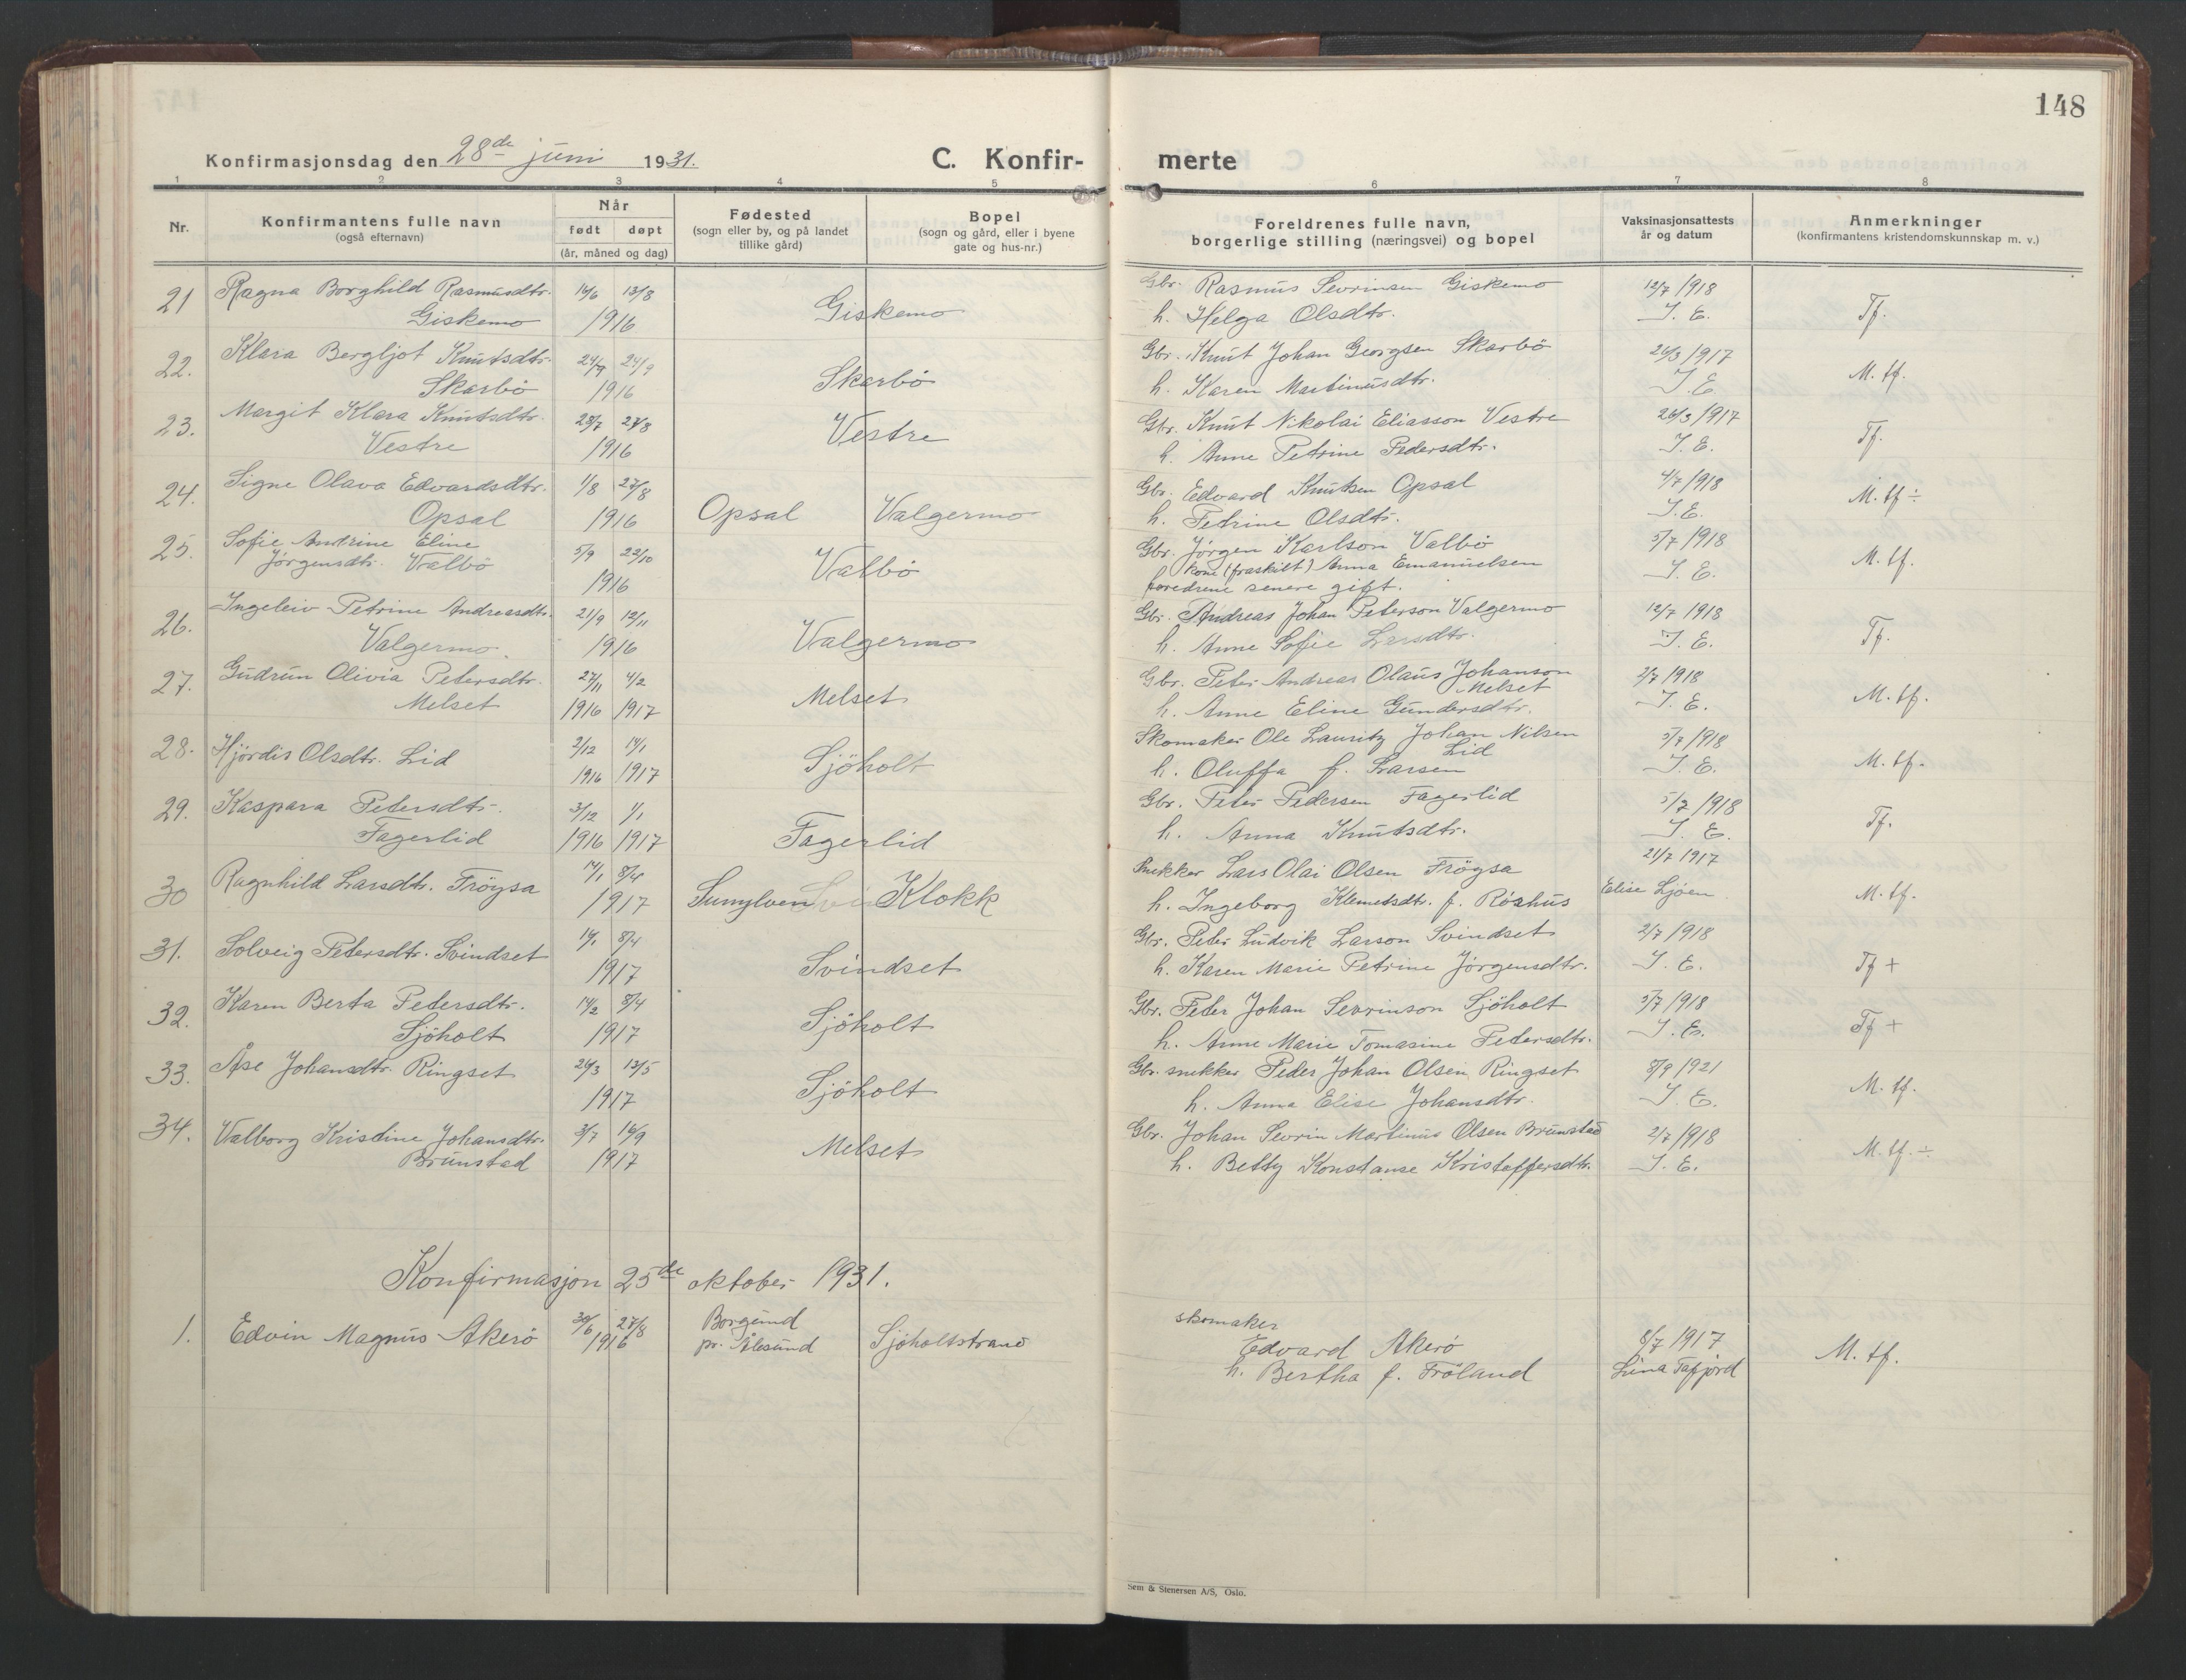 148
Konfirmasjonsdag den 28de juni 1931. C. Konfir- merte
1 2 3 4 5 6 7 8
Nr. Konfirmantens fulle navn (også efternavn) Når født døpt (år, måned og dag) Fødested (sogn eller by, og på landet tillike gård) Bopel (sogn og gård, eller i byene gate og hus-nr.) Foreldrenes fulle navn, borgerlige stilling (næringsvei) og bopel Vaksinasjonsattests år og datum Anmerkninger (konfirmantens kristendomskunnskap m. v.)
21 Ragna Borghild Rasmusdtr. 16/6 13/8 Giskemo Gbr. Rasmus Sevrinsen Giskemo 12/7 1918 Tf.
Giskemo 1916 h. Helga Olsdtr. J. E.
22. Klara Bergljot Knutsdtr. 24/9 Skarbö Gbr. Knut Johan Georgsen Skarbö 26/3 1917 M. tf.
Skarbö 1916 h. Karen Martinusdtr. J. E
23. Margit Klara Knutsdtr. 23/7 27/8 Vestre Gbr. Knut Nikolai Eliasson Vestre 26/3 1917 Tf.
Vestre 1916 h. Anne Petrine Pedersdtr. J. E.
24. Signe Olava Edvardsdtr. 1/8 27/8 Opsal Valgermo Gbr. Edvard Knutsen Opsal 4/7 1918 M. tf ÷
Opsal 1916 h. Petrine Olsdtr. J. E.
25. Sofie Andrine Eline 5/9 22/10 Valbö Gbr. Jörgen Karlson Valbö 5/7 1918 M. tf.
Jörgensdtr. Valbö 1916 kone (fraskilt) Anna Emanuelsen J. E.
foredrene senere gift.
26. Ingeleiv Petrine Andreasdtr. 21/9 12/11 Valgermo Gbr. Andreas Johan Peterson Valgermo 12/7 1918 Tf.
Valgermo. 1916 h. Anne Sofie Larsdtr. J. E.
27. Gudrun Olivia Petersdtr. 27/11 4/2 Melset Gbr. Peter Andreas Olaus Johanson Melset 2/7 1918 M. tf.
Melset 1916 1917 h. Anne Eline Gundersdtr. J. E.
28. Hjördis Olsdtr. Lid 2/12 14/1 Sjöholt Skomaker Ole Lauritz Johan Nilsen Lid 5/7 1918 M. tf.
1916 1917 h. Oluffa f. Larsen J. E.
29. Kaspara Petersdtr. 3/12 1/1 Fagerlid Gbr. Peter Pedersen Fagerlid 5/7 1918 Tf.
Fagerlid 1916 1917 h. Anna Knutsdtr. J. E.
30 Ragnhild Larsdtr. Fröysa 14/1 8/4 Sunylven Klokk Snekker Lars Olai Olsen Frögsa 21/7 1917 M. tf.
1917 h. Ingeborg Klemetsdtr. f. Röshus Elise Ljöen
31. Solveig Petersdtr. Svindset 8/4 Svindset Gbr. Peter Ludvik Larson Svindset 2/7 1918 Tf +
1917 h. Karen Marie Petrine Jörgensdtr. J. E.
32. Karen Berta Pedersdtr. 14/2 8/4 Sjöholt Gbr. Peder Johan Sevrinson Sjöholt 5/7 1918 Tf +
Sjöholt 1917 h. Anne Marie Tomasine Pedersdtr. J. E.
33. Åse Johansdtr. Ringset 26/3 13/5 Sjöholt Gbr. snekker Peder Johan Olsen Ringset 8/9 1921 M. tf.
1917 h. Anna Elise Johansdtr. J. E.
34. Valborg Kristine Johansdtr. 3/7 16/9 Melset Gbr. Johan Sevrin Martinus Olsen Brunstad 2/7 1918 M. tf. ÷
Brunstad 1917 h. Betty Konstanse Kristoffersdtr. J. E.
Konfirmasjon 25de oktober 1931.
1. Edvin Magnus Akerö 30/6 27/8 Borgund skomaker
1916 pr. Ålesund Sjöholtstrand Edvard Akerö 8/7 1917 M. tf.
h. Bertha f. Fröland Lina Tafjord
Sem & Stenersen A/S, Oslo.